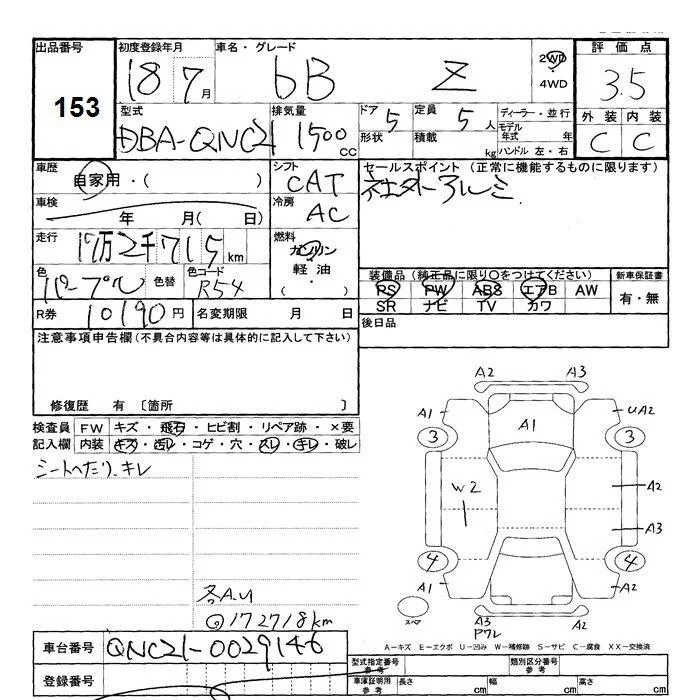 出品番号 初度登録年月 車名・グレード 評価点
153 18 7月 bB Z 2WD 4WD 3.5
型式 排気量 ドア 5 定員 5人 ディーラー・並行 外装 内装
DBA-QNC21 1500 cc 形状 積載 kg モデル年式 年 C C
ハンドル 左・右
車歴 自家用・( ) シフト CAT セールスポイント (正常に機能するものに限ります)
車検 年 月( 日) 冷房 AC 社外アルミ
走行 17万2千715km 燃料 ガソリン
軽油
( )
色 パープル 色替 色コード R54 装備品 (純正品に限り○をつけてください) 新車保証書
PS PW ABS エアB AW 有・無
SR ナビ TV カワ
R券 10190円 名変期限 月 日 後日品
注意事項申告欄 (不具合内容等は具体的に記入して下さい)
修復歴 有 〔箇所 〕
検査員 FW キズ・飛石・ヒビ割・リペア跡・×要
記入欄 内装 キズ・汚レ・コゲ・穴・スレ・キレ・破レ
シートへたり、キレ
A2 A3
A1 A1 UA2
3 3
W2 A2
A3
4 4
A1 A2
スペア A3 A2
Pワレ
各A.U
@172718km
A-キズ E-エクボ U-凹み W-補修跡 S-サビ C-腐食 XX-交換済
車台番号 QNC21-0029146
型式指定番号 参考 類別区分番号 参考
登録番号
車庫証明用 参考 長さ cm 幅 cm 高さ cm